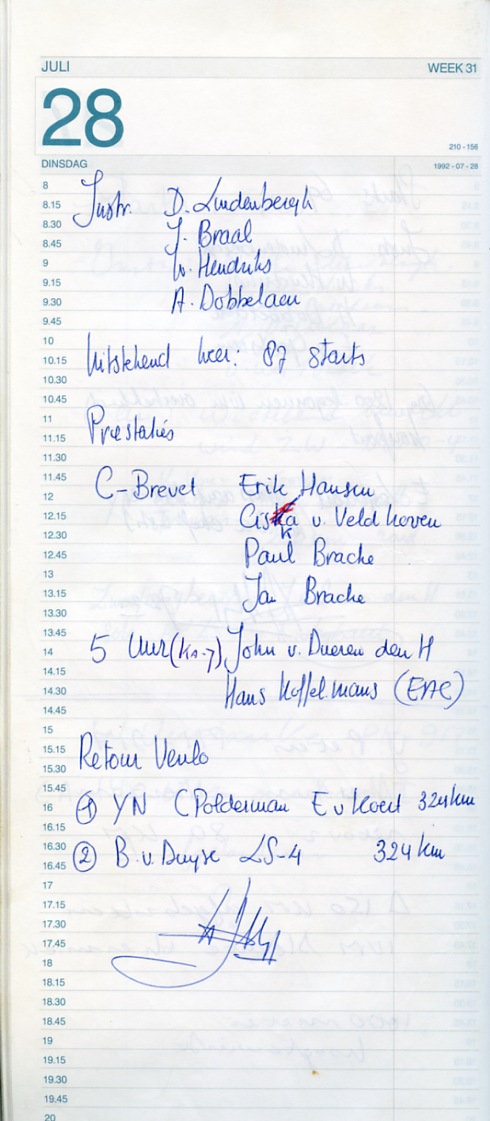 JULI WEEK 31
28
210 - 156
DINSDAG 1992 - 07 - 28
8
8.15 Instr. D. Lindenbergh
8.30 J. Braal
8.45
9 W. Hendriks
9.15
9.30 A. Dobbelaer
9.45
10
10.15 Uitstekend weer: 87 starts
10.30
10.45
11
11.15 Prestaties
11.30
11.45 C-Brevet Erik Hansen
12
12.15 Ciska v. Veldhoven
12.30 k
12.45 Paul Brache
13
13.15 Jan Brache
13.30
13.45
14 5 Uur (Ka-7) John v. Dueren den H
14.15
14.30 Hans Koffelmans (EAC)
14.45
15
15.15 Retour Venlo
15.30
15.45
16 1 YN C Polderman E v Koert 324 km
16.15
16.30
16.45 2 B. v. Duyse LS-4 324 km
17
17.15
17.30
17.45
18
18.15
18.30
18.45
19
19.15
19.30
19.45
20